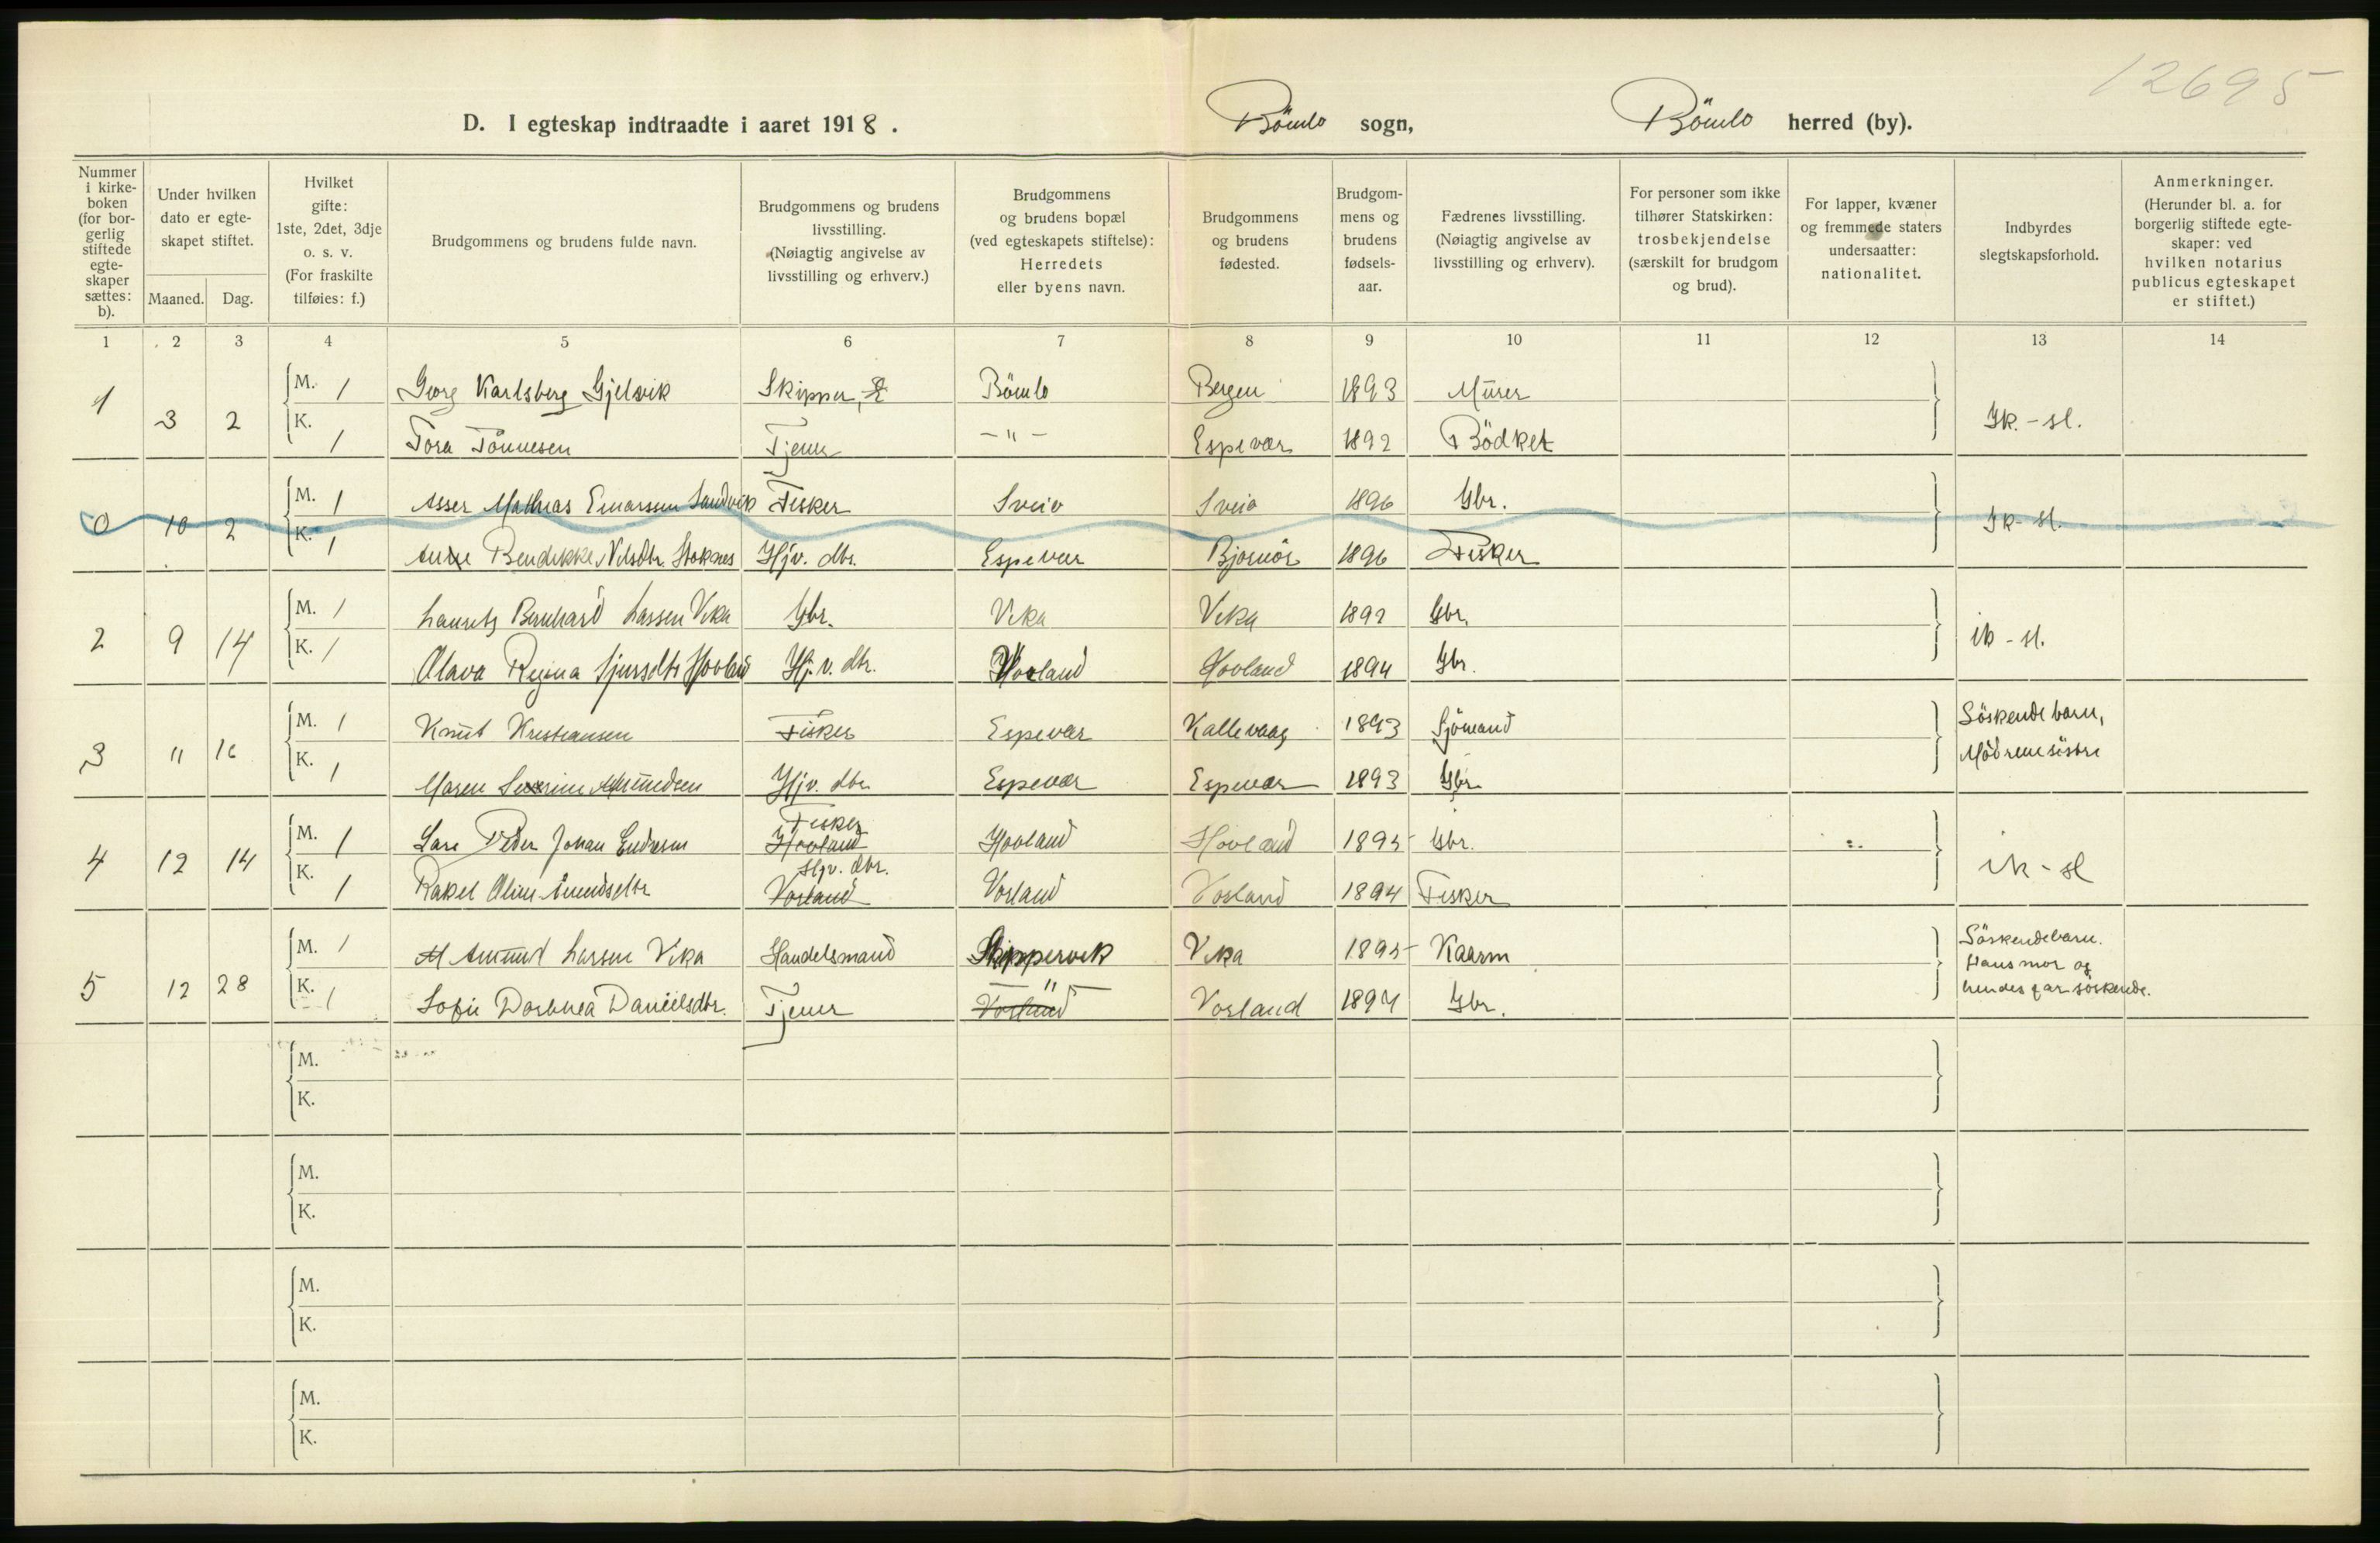 12695
D. I egteskap indtraadte i aaret 1918. Bömlo sogn, Bömlo herred (by).
Nummer i kirkeboken (for borgerlig stiftede egteskaper sættes: b).
Under hvilken dato er egteskapet stiftet.
Maaned. Dag.
Hvilket gifte: 1ste, 2det, 3dje o. s. v. (For fraskilte tilføies: f.)
Brudgommens og brudens fulde navn.
Brudgommens og brudens livsstilling. (Nøiagtig angivelse av livsstilling og erhverv.)
Brudgommens og brudens bopæl (ved egteskapets stiftelse): Herredets eller byens navn.
Brudgommens og brudens fødested.
Brudgommens og brudens fødselsaar.
Fædrenes livsstilling. (Nøiagtig angivelse av livsstilling og erhverv).
For personer som ikke tilhører Statskirken: trosbekjendelse (særskilt for brudgom og brud).
For lapper, kvæner og fremmede staters undersaatter: nationalitet.
Indbyrdes slegtskapsforhold.
Anmerkninger. (Herunder bl. a. for borgerlig stiftede egteskaper: ved hvilken notarius publicus egteskapet er stiftet.)
1 2 3 4 5 6 7 8 9 10 11 12 13 14
1 3 2 M. 1 Georg Karlsberg Gjelsvik Skipper, Bömlo Bergen 1893 Murer Ik. - sl.
K. 1 Tora Tönnesen Tjener - " - Espevær 1892 Bödker
0 10 2 M. 1 Asser Mathias Einarssen Sandvik Fisker Sveio Sveio 1896 Gbr. Ik - sl.
K. 1 Anne Bendikke Nilsdtr. Stoknes Hjv. dtr. Espevær Bjørnör 1896 Fisker
2 9 14 M. 1 Lauritz Bernhard Larssen Vika Gbr. Vika Vika 1892 Gbr. ik - sl.
K. 1 Olava Regina Sjursdtr Hovland Hj. v. dtr. Hovland Hovland 1894 Gbr.
3 " 16 M. 1 Knut Kristiansen Fisker Espevær Kallevaag 1893 Sjömand Söskendebarn, Mödrene söstre
K. 1 Maren Severine Amundsen Hjv. dtr Espevær Espevær 1893 Gbr.
4 12 14 M. 1 Lars Peder Johan Endresen Fisker Hovland Hovland Hovland 1895 Gbr. ik - sl
K. 1 Rakel Oline Amundsdtr Hjv. dtr. Vorland Vorland Vorland 1894 Fisker
5 12 28 M. 1 Amund Larsen Vika Handelsmand Skippervik Vika 1895 Kaarm Söskendebarn. Hans mor og hendes far söskende.
K. 1 Sofie Dorthea Danielsdtr. Tjener - " - Vorland Vorland 1894 Gbr.
M.
K.
M.
K.
M.
K.
M.
K.